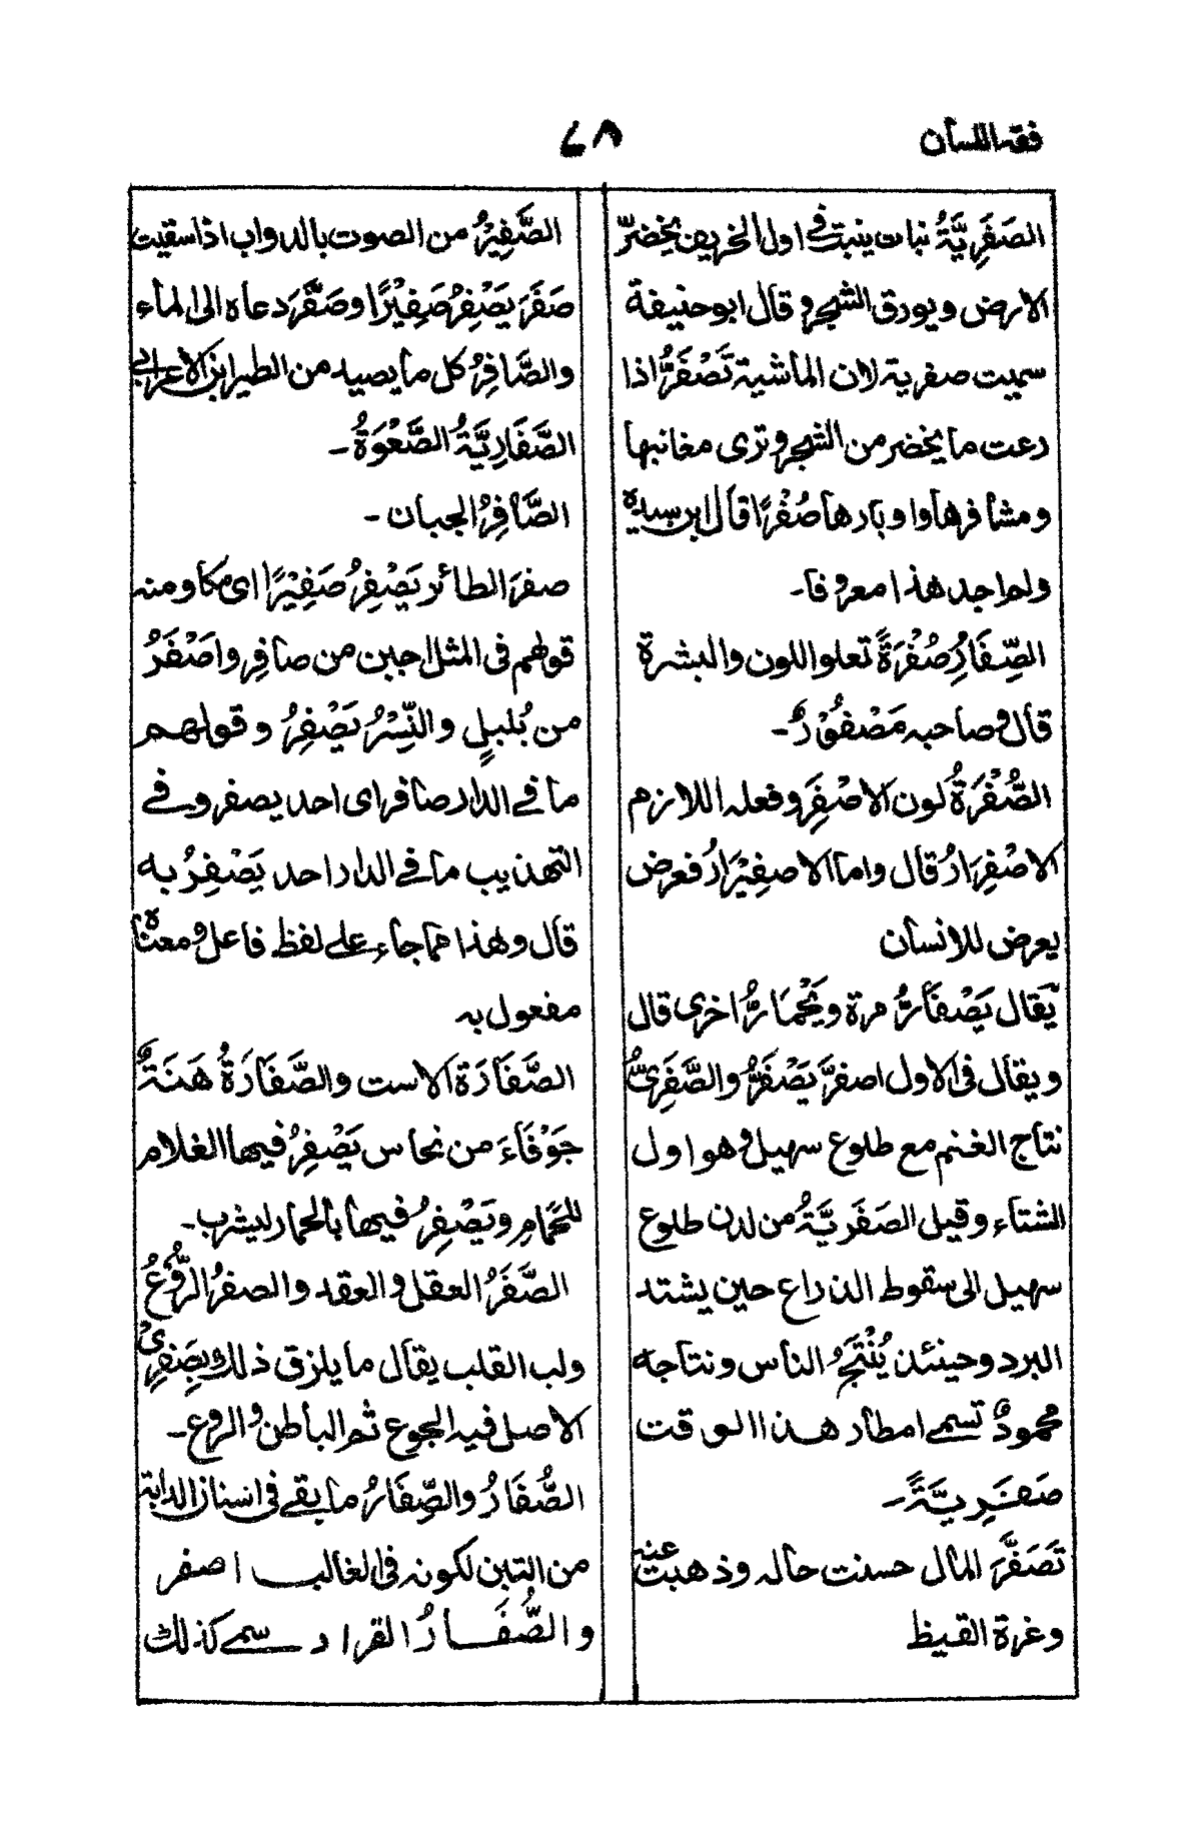 فقہ اللسان
٦٨
الصَفَرِيَّةُ نبات ينبت فى اول الخريف يخضرّ
الارض ويورق الشجر و قال ابوحنيفة
سميت صفرية لان الماشية تَصْفَرُّ اذا
رعت ما يخضر من الشجر و ترى مغابنها
ومشافرها و اوبارها صُفْرًا قال ابن سيده
ولم اجد هذا معروفا۔
الصِّفَارُ صُفْرَةً تعلو اللون والبشرة
قال و صاحبه مَصْفُوْرٌ۔
الصُّفْرَةُ لون الاصْفَر و فعله اللازم
الاصْفِرَارُ قال واما الاصفِيْرَارُ فعرض
يعرض للانسان
يُقال يَصْفَارُّ مرة ويَحْمَارُّ اخرى قال
ويقال فى الاول اصفرَّ يَصْفَرُّ والصَّفَرِىُّ
نتاج الغنم مع طلوع سهيل و هو اول
الشتاء وقيل الصَفَرِيَّةُ من لدن طلوع
سهيل الى سقوط الذراع حين يشتد
البرد وحينئذ يُنْتَجُ الناس ونتاجه
محمودٌ تسمى امطار هذا الوقت
صَفَرِيَّةً۔
تَصَفَّرَ المال حسنت حاله وذهبت عنه
وغرة القيظ
الصَّفِيْرُ من الصوت بالدواب اذا سقيت
صَفَرَ يَصْفِرُ صَفِيْرًا و صَفَّرَ دعاه الى الماء
والصَّافِرُ كل ما يصيد من الطير ابن الاعرابى
الصَّفَارِيَّةُ الصَّعْوَةُ۔
الصَّافِرُ الجبان۔
صفرَ الطائر يَصْفِرُ صَفِيْرًا اى مكا ومنه
قولهم فى المثل اجبن من صافِر واَصْفَرُ
من بُلبلٍ والنِّسْرُ يَصْفِرُ وقولهم
ما فى الدار صافر اى احد يصفر وفى
التهذيب ما فى الدار احد يَصْفِرُ به
قال وهذا مما جاء على لفظ فاعل و معناه
مفعول به
الصَّفَارَة الاست والصَّفَارَةُ هَنَةٌ
جَوْفَاءَ من نحاس يَصْفِرُ فيها الغلام
للحَمَامِ ويَصْفِرُ فيها بالحمار ليشرب۔
الصَّفَرُ العقل و العقد والصفرُ الرُّوْعُ
ولب القلب يقال ما يلزق ذلك بِصَفَرِىْ
الاصل فيه الجوع ثم الباطن و الروع۔
الصُّفَارُ والصِّفَارُ ما بقى فى اسنان الدابة
من التبن لكونه فى الغالب اصفر
والصُّفَارُ القراد سمى كذلك